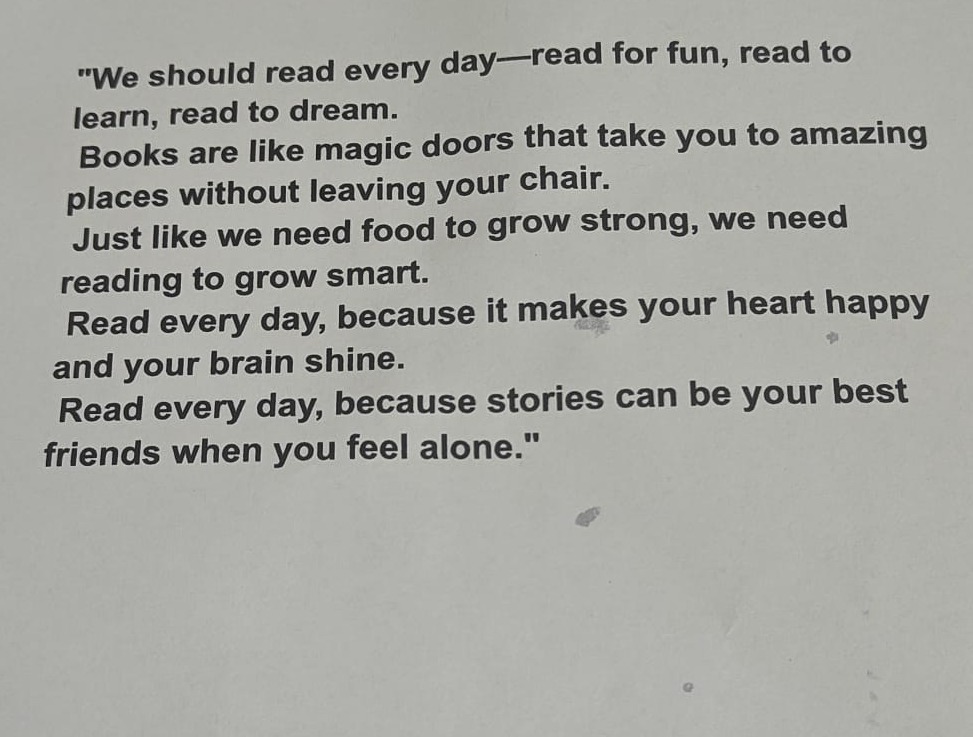 "We should read every day—read for fun, read to
learn, read to dream.
Books are like magic doors that take you to amazing
places without leaving your chair.
Just like we need food to grow strong, we need
reading to grow smart.
Read every day, because it makes your heart happy
and your brain shine.
Read every day, because stories can be your best
friends when you feel alone."